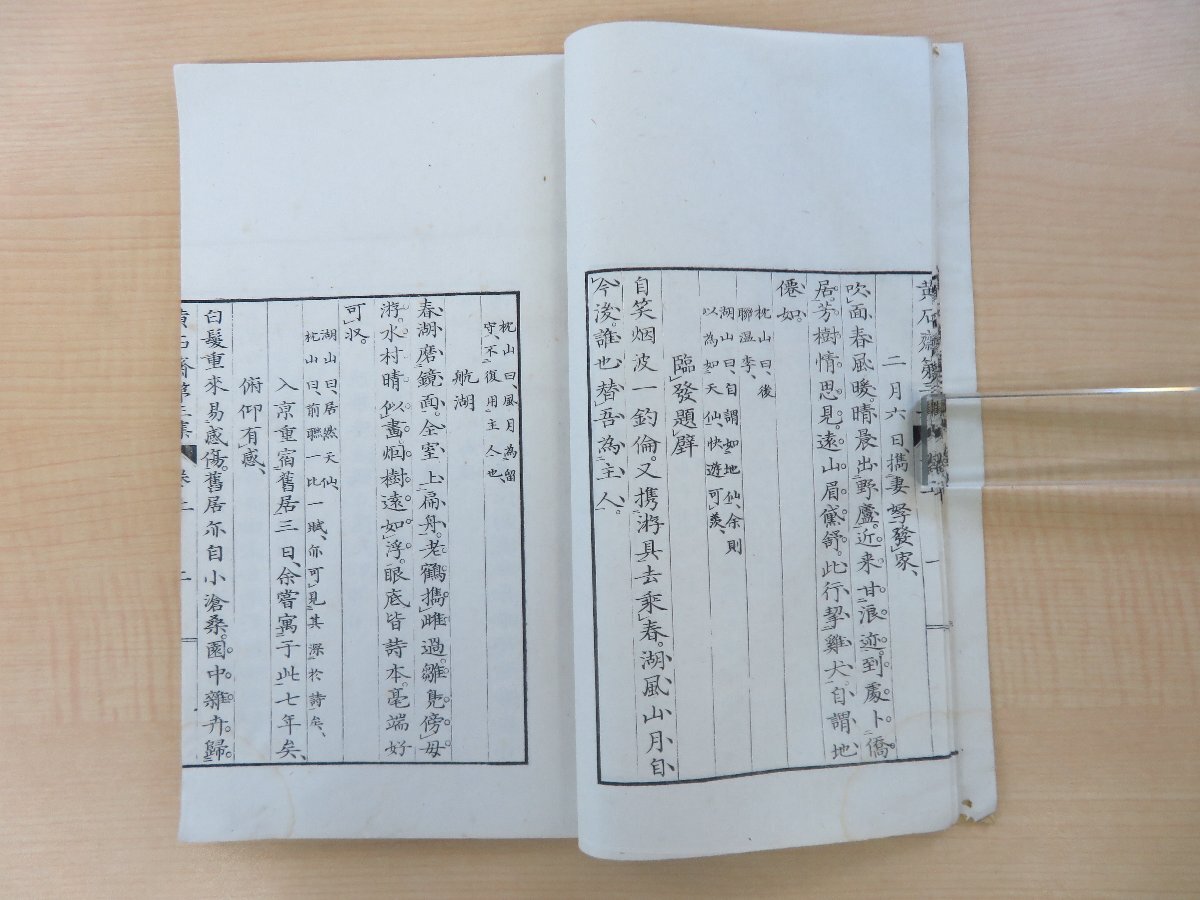 二月六日携妻孥發家、
吹面春風暖。晴晨出野廬。近来甘浪迹。到處卜僑
居。芳樹情思見。遠山眉黛舒。此行挈雞犬。自謂地
僊如。
枕山曰、後
聯溫李、
湖山曰、自謂如地仙、余則
以為如天仙、快遊可羨、
臨發題壁
自笑烟波一釣倫。又携游具去乘春。湖風山月自
今後。誰也替吾為主人。
枕山曰、風月為留
守、不復用主人也、
航湖
春湖磨鏡面。全室上扁舟。老鶴携雌過。雛鳧傍母
游。水村晴似畫。烟樹遠如浮。眼底皆詩本。毫端好
可収。
湖山曰、居然天仙、
枕山曰、前聯一比一賦、亦可見其深於詩矣、
入京重宿舊居三日、余嘗寓于此七年矣、
俯仰有感、
白髮重來易感傷。舊居亦自小滄桑。園中雜卉歸
黃石齋第三集